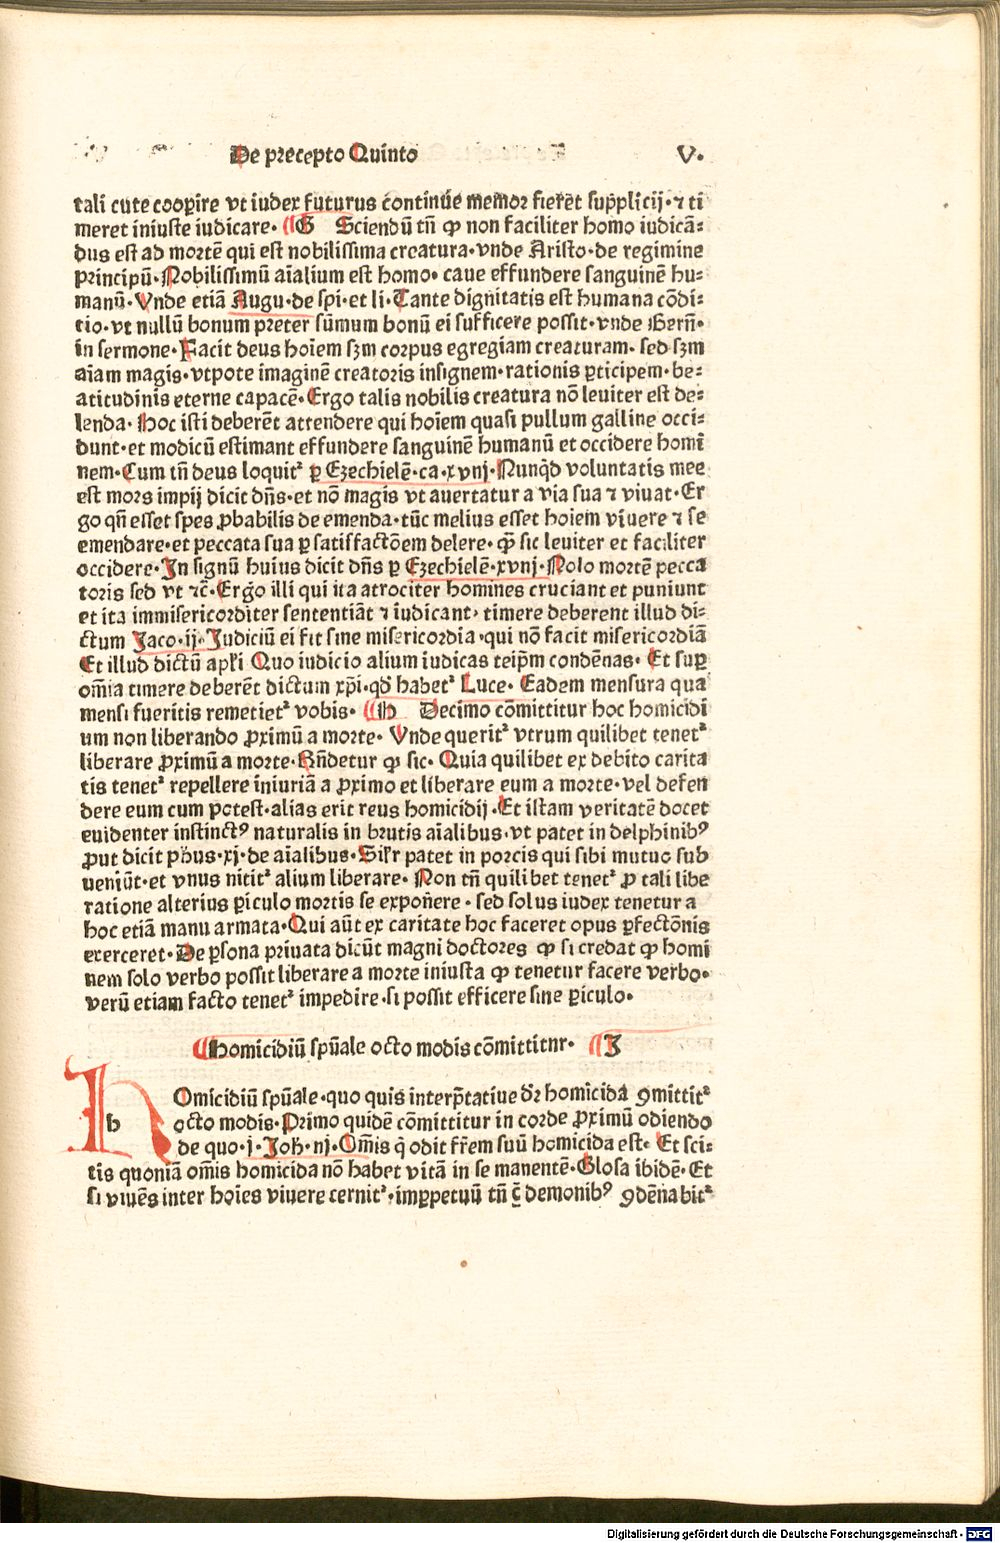 De precepto Quinto V.
tali cute cooꝑire vt iudex futurus continue memor fierēt supplicij·⁊ ti
meret iniuste iudicare· ¶G Sciendū tn̄ ꝙ non faciliter homo iudicā⸗
dus est ad mortē qui est nobilissima creatura·vnde Aristo·de regimine
principū·Nobilissimū aīalium est homo· caue effundere sanguinē hu⸗
manū·Vnde etiā Augu·de spi·et li·Tante dignitatis est humana cōdi⸗
tio·vt nullū bonum preter sūmum bonū ei sufficere possit·vnde Bern̄·
in sermone·Facit deus hoīem scꝫm corpus egregiam creaturam· sed scꝫm
aīam magis·vtpote imaginē creatoris insignem·rationis ꝑticipem·be⸗
atitudinis eterne capacē·Ergo talis nobilis creatura nō leuiter est de⸗
lenda· Hoc isti deberēt attendere qui hoīem quasi pullum galline occi⸗
dunt·et modicū estimant effundere sanguinē humanū et occidere homī
nem·Cum tn̄ deus loquitᷣ ꝑ Ezechielē·ca·xvnj·Nunqͥd voluntatis mee
est mors impij dicit dn̄s·et nō magis vt auertatur a via sua ⁊ viuat·Er
go qn̄ esset spes ꝓbabilis de emenda·tūc melius esset hoiem viuere ⁊ se
emendare·et peccata sua ꝑ satisfactōem delere· ꝙ̄ sic leuiter et faciliter
occidere·In signū huius dicit dn̄s ꝑ Ezechielē·xvnj·Nolo mortē pecca
toris sed vt ⁊c̄·Ergo illi qui ita atrociter homines cruciant et puniunt
et ita immisericorditer sententiāt ⁊ iudicant· timere deberent illud di⸗
ctum Jaco·ij·Judiciū ei fit sine misericordia·qui nō facit misericordiā
Et illud dictū apl̄i Quo iudicio alium iudicas teip̄m condēnas· Et suꝑ
om̄ia timere deberēt dictum xp̄i·qd̄ habetᷣ Luce· Eadem mensura qua
mensi fueritis remetietᷣ vobis· ¶H Decimo cōmittitur hoc homicidi
um non liberando ꝓximū a morte· Vnde queritᷣ vtrum quilibet tenetᷣ
liberare ꝓximū a morte·Rn̄detur ꝙ sic· Quia quilibet ex debito carita
tis tenetᷣ repellere iniuriā a ꝓximo et liberare eum a morte·vel defen
dere eum cum potest·alias erit reus homicidij·Et istam veritatē docet
euidenter instinctꝰ naturalis in brutis aīalibus·vt patet in delphinibꝰ
ꝓut dicit ph̄us·xj·de aīalibus·Sil̄r patet in porcis qui sibi mutuo sub
ueniūt·et vnus nititᷣ alium liberare· Non tn̄ quilibet tenetᷣ ꝓ tali libe
ratione alterius ꝑiculo mortis se exponere · sed solus iudex tenetur a
hoc etiā manu armata·Qui aūt ex caritate hoc faceret opus ꝑfectōnis
exerceret·De ꝑsona priuata dicūt magni doctores ꝙ si credat ꝙ homi
nem solo verbo possit liberare a morte iniusta ꝙ tenetur facere verbo·
verū etiam facto tenetᷣ impedire·si possit efficere sine ꝑiculo·
¶Homicidiū spūale octo modis cōmittitnr· ¶J
HOmicidiū spūale·quo quis interp̄tatiue dr̄ homicida ꝯmittitᷣ
h octo modis·Primo quidē cōmittitur in corde ꝓximū odiendo
de quo·j·Joh̄·nj·Om̄is q̇ odit fr̄em suū homicida est· Et sci⸗
tis quoniā om̄is homicida nō habet vitā in se manentē·Glosa ibidē·Et
si viuēs inter hoīes viuere cernitᷣ·imꝑpetuū tn̄ c̄ demonibꝰ ꝯdēnabitᷣ
Digitalisierung gefördert durch die Deutsche Forschungsgemeinschaft · DFG